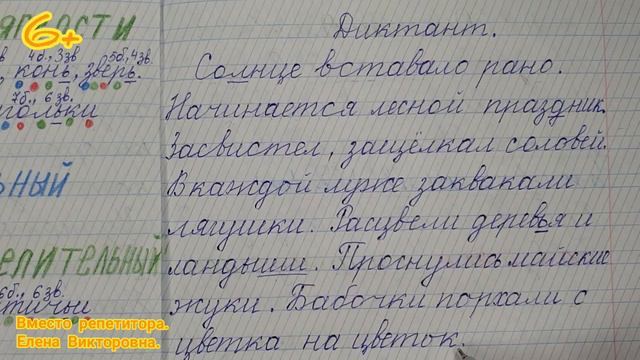 6+
ЯГКОСТИ
4б., 3зв 5б, 4зв.
, конь, зверь.
7б., 6 зв.
гольки
ЬНЫЙ
ЕЛИТЕЛЬНЫЙ
6б., 6зв.
птичьи
Диктант.
Солнце вставало рано.
Начинается лесной праздник.
Засвистел, защёлкал соловей.
В каждой луже заквакали
лягушки. Расцвели деревья и
ландыши. Проснулись майские
жуки. Бабочки порхали с
цветка на цветок.
Вместо репетитора.
Елена Викторовна.